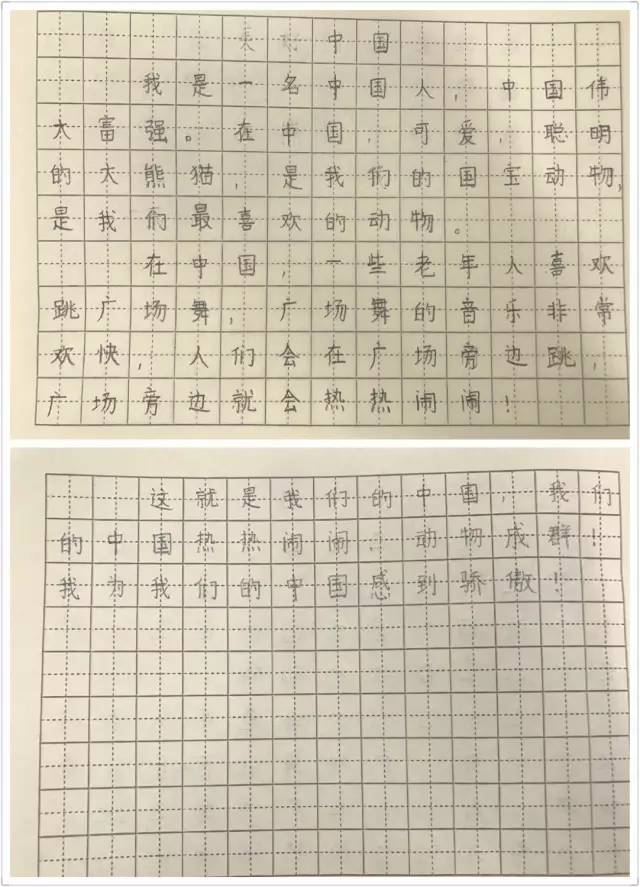 中国
我是一名中国人，中国伟
大富强。在中国，可爱，聪明
的大熊猫，是我们的国宝动物，
是我们最喜欢的动物。
在中国，一些老年人喜欢
跳广场舞，广场舞的音乐非常
欢快，人们会在广场旁边跳，
广场旁边就会热热闹闹！
这就是我们的中国，我们
的中国热热闹闹，动物成群！
我为我们的中国感到骄傲！